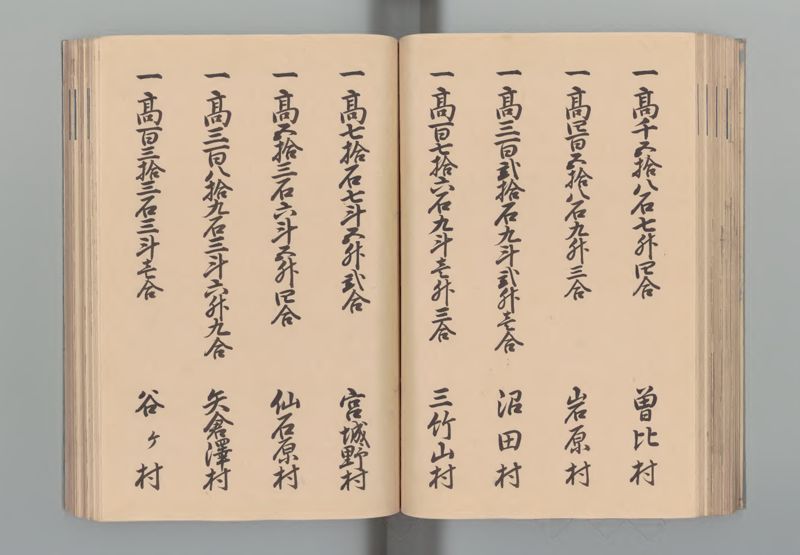 一高千五拾八石七升四合 曽比村
一高四百五拾八石九升三合 岩原村
一高三百弐拾石九斗弐升壱合 沼田村
一高百七拾六石九斗壱升三合 三竹山村
一高七拾石七斗五升弐合 宮城野村
一高五拾三石六斗五升四合 仙石原村
一高三百八拾九石三斗六升九合 矢倉澤村
一高百三拾三石三斗壱合 谷ヶ村